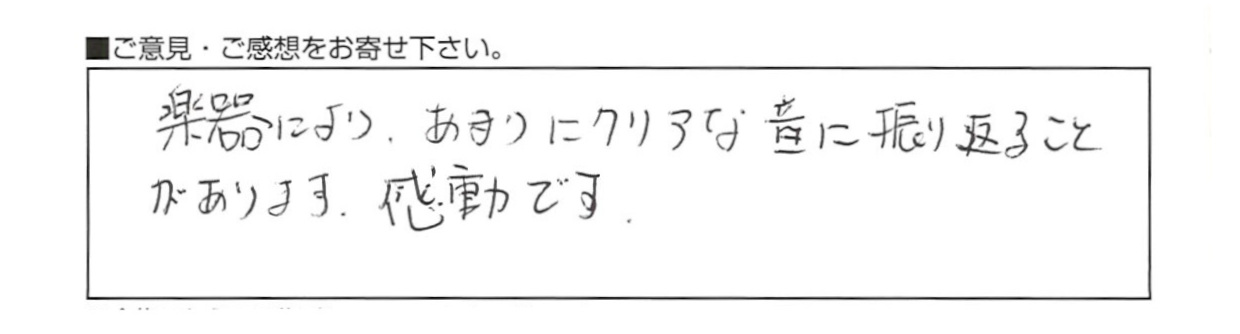 ■ご意見・ご感想をお寄せ下さい。
楽器により、あまりにクリアな音に振り返ること
があります。感動です。